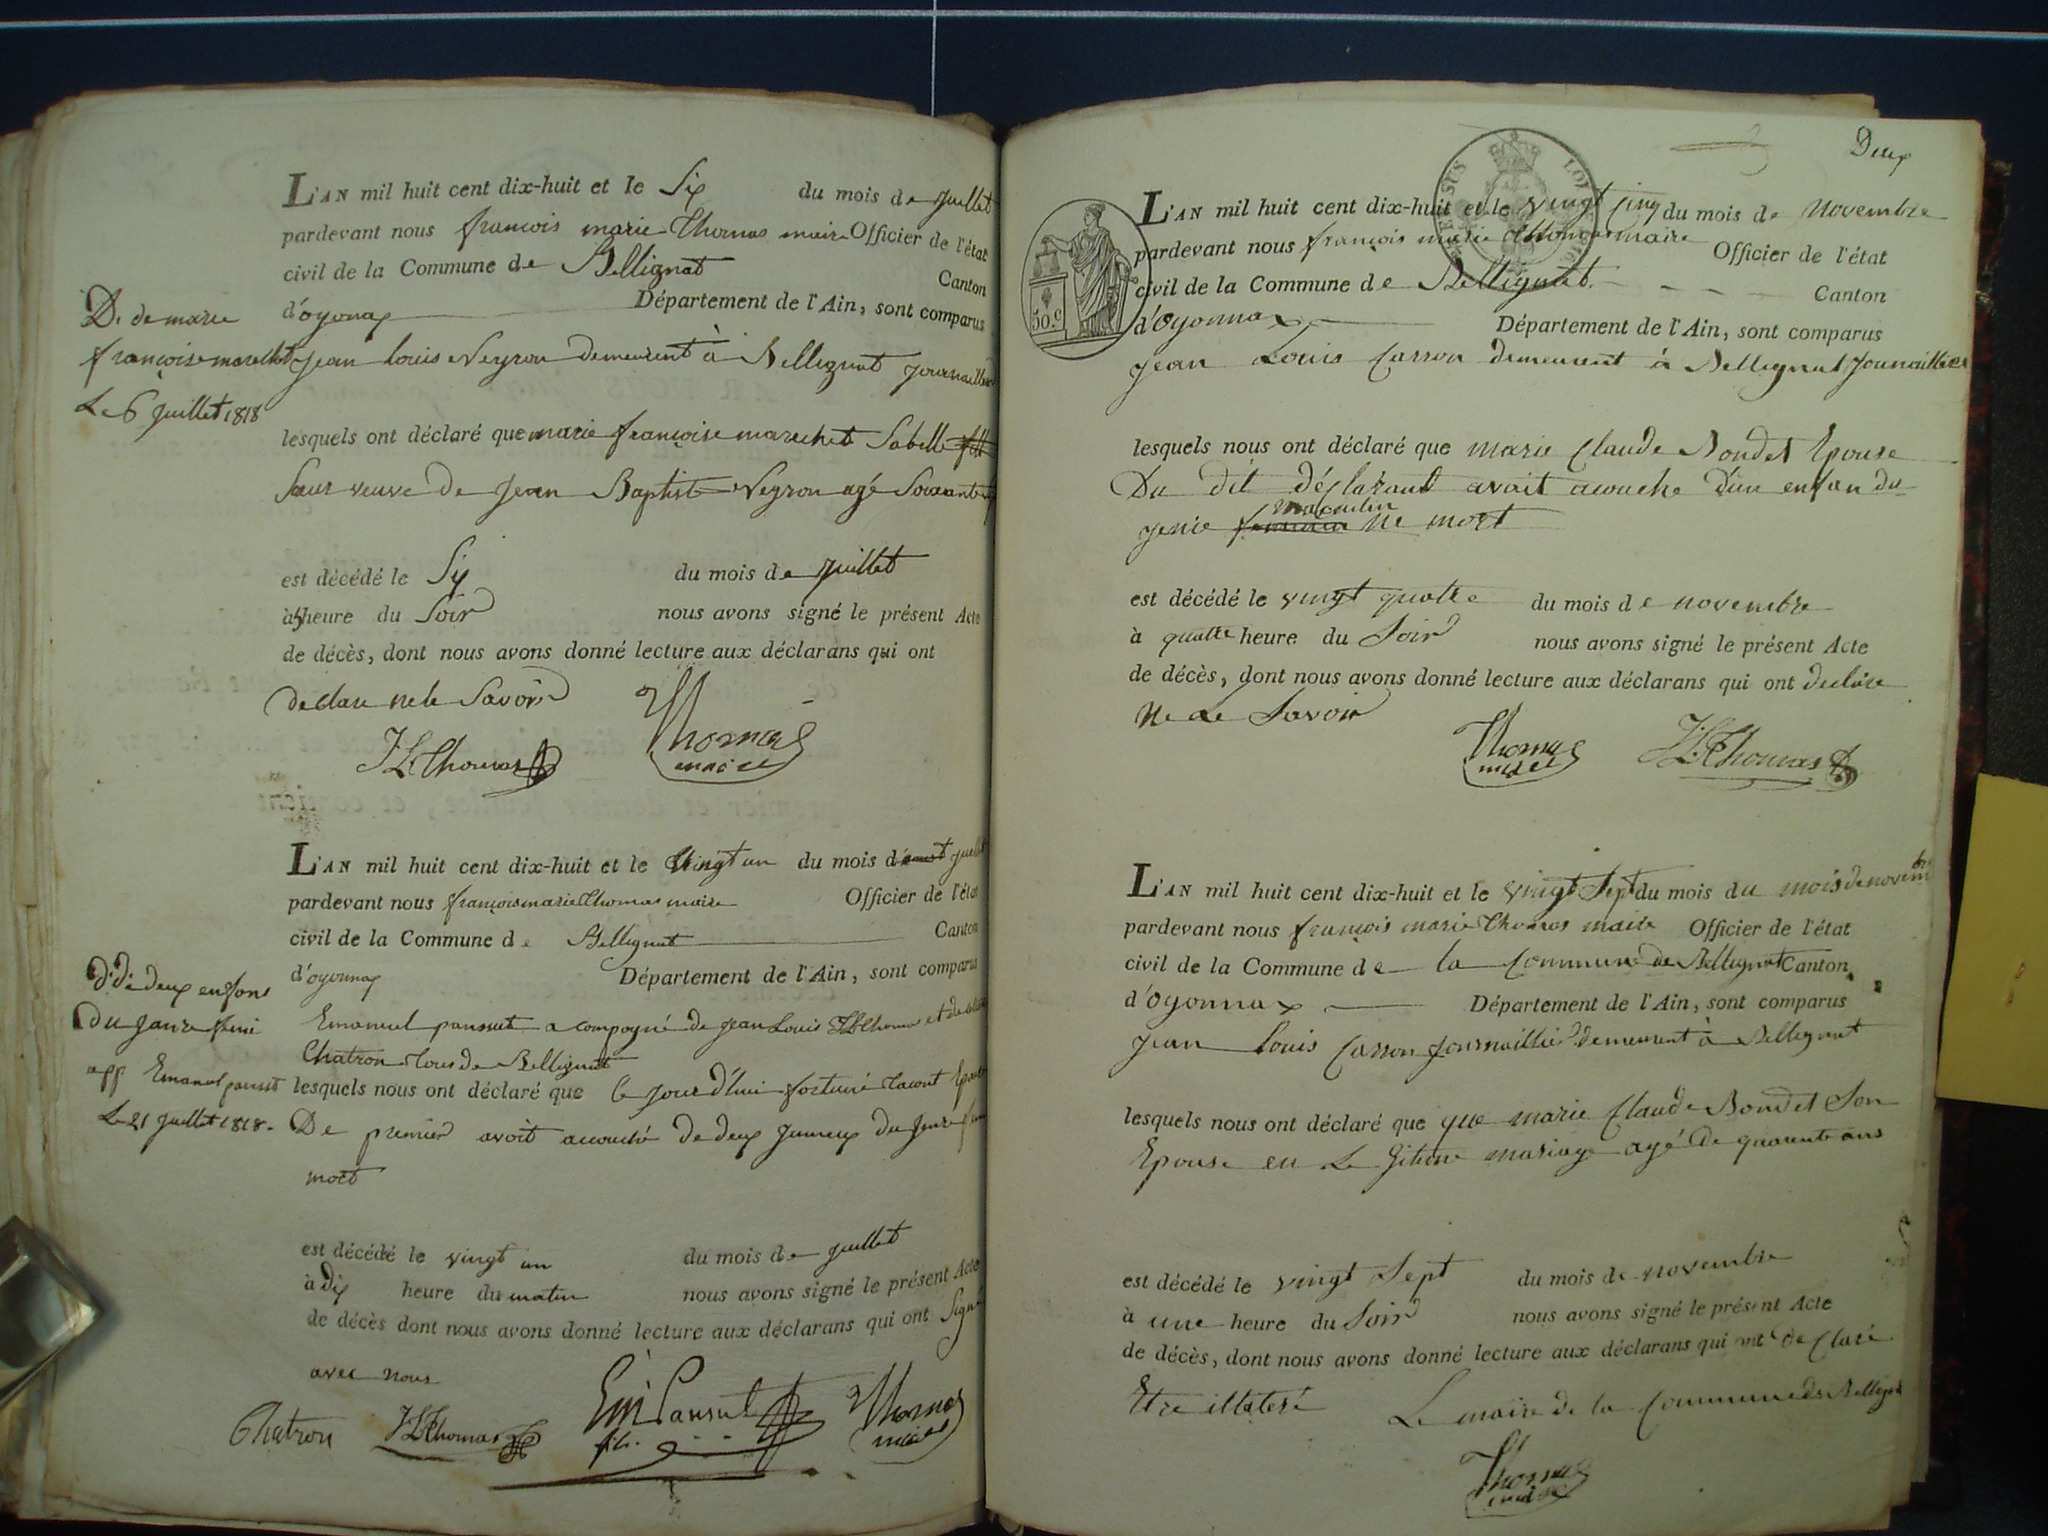 L'AN mil huit cent dix-huit et le Six du mois de juillet
pardevant nous françois marie Thomas maire Officier de l'état
civil de la Commune de Bellignat Canton
d'oyonax Département de l'Ain, sont comparus
D. de marie
françoise marechet
Le 6 juillet 1818
jean louis Neyron demeurent à Bellignat journaillier
lesquels ont déclaré que marie françoise marechet Sabelle
Saur veuve de jean Baptiste Neyron agé Soixante
est décédé le Six du mois de juillet
à 5 heure du Soir nous avons signé le présent Acte
de décès, dont nous avons donné lecture aux déclarans qui ont
declare ne le Savoir
JLThomas Thomas
maire
L'AN mil huit cent dix-huit et le Vingt un du mois d'aout juillet
pardevant nous françois marie Thomas maire Officier de l'état
civil de la Commune de Bellignat Canton
d'oyonnax Département de l'Ain, sont comparus
D. de deux enfans
du janre femi
app Emanuel pansut
Le 21 juillet 1818.
Emanuel pansut acompagné de jean Louis Thomas et de
Chatron tous de Bellignat
lesquels nous ont déclaré que ce jour d'hui fortuné tacout Epouse
De premier avoit acouché de deux jumeux du janre
mort
est décédé le vingt un du mois de juillet
à dix heure du matin nous avons signé le présent Acte
de décès dont nous avons donné lecture aux déclarans qui ont Signé
avec nous
Chatron JLThomas Em Pansut Thomas
fils. maire
Deux
50.c
L'AN mil huit cent dix-huit et le vingt cinq du mois de Novembre
pardevant nous françois marie Thomas maire Officier de l'état
civil de la Commune de Bellignat. Canton
d'Oyonnax Département de l'Ain, sont comparus
jean Louis Carron demeurent à Bellignat Journaillier
lesquels nous ont déclaré que marie Claude Bondet Epouse
Du dit déclarant avait acouche d'un enfan du
masculin
genre feminin ne mort
est décédé le vingt quatre du mois de novembre
à quatre heure du Soir nous avons signé le présent Acte
de décès, dont nous avons donné lecture aux déclarans qui ont declare
Ne Le Savoir
Thomas JLThomas
maire
L'AN mil huit cent dix-huit et le vingt Sept du mois du mois de novembre
pardevant nous françois marie Thomas maire Officier de l'état
civil de la Commune de la Commune de Bellignat Canton
d'Oyonnax Département de l'Ain, sont comparus
jean louis Carron journaillier demeurent à Bellignat
lesquels nous ont déclaré que que marie Claude Bondet Son
Epouse en Le Gitime mariage agé de quarente ans
est décédé le vingt Sept du mois de novembre
à une heure du Soir nous avons signé le présent Acte
de décès, dont nous avons donné lecture aux déclarans qui ont de Claré
Etre illiteré Le maire de la Commune de Bellignat
Thomas
maire